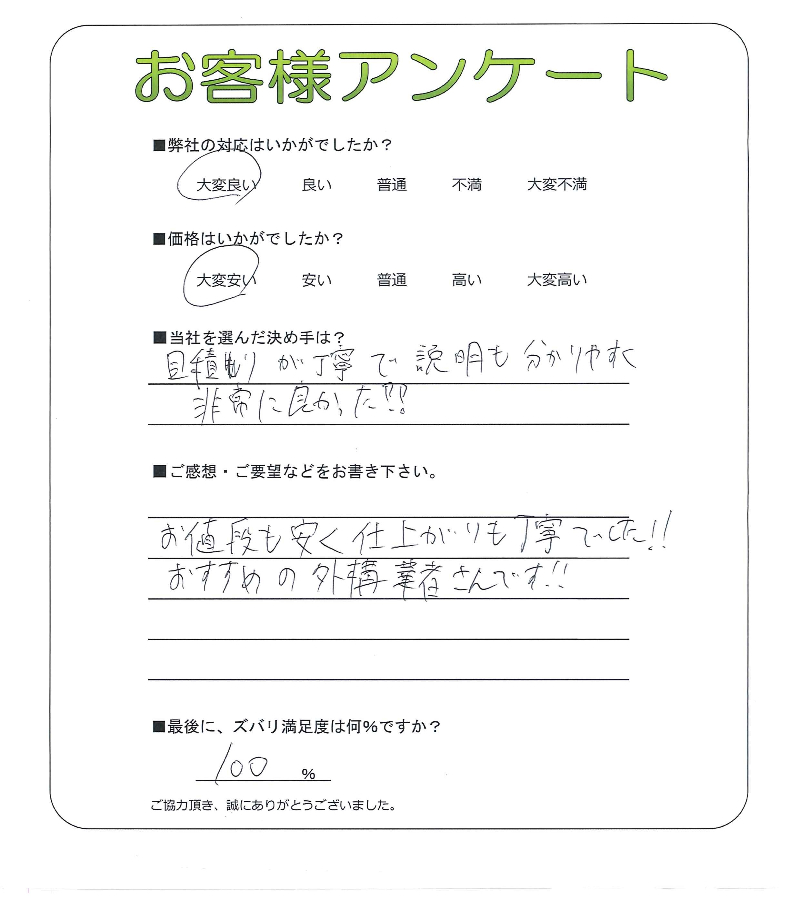 お客様アンケート
■弊社の対応はいかがでしたか？
大変良い　良い　普通　不満　大変不満
■価格はいかがでしたか？
大変安い　安い　普通　高い　大変高い
■当社を選んだ決め手は？
見積もりが丁寧で説明も分かりやすく
非常に良かった!!
■ご感想・ご要望などをお書き下さい。
お値段も安く仕上がりも丁寧でした!!
おすすめの外構業者さんです!!
■最後に、ズバリ満足度は何％ですか？
100 %
ご協力頂き、誠にありがとうございました。